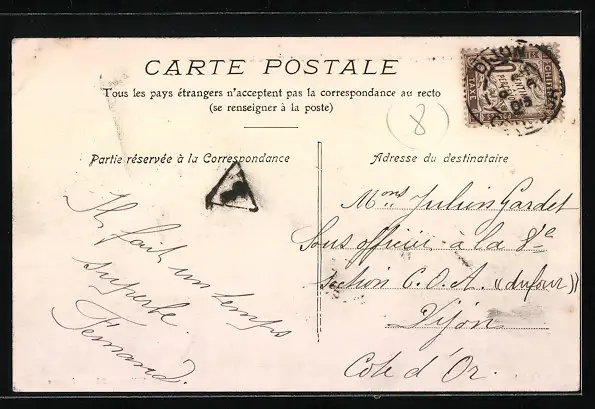 CARTE POSTALE
Tous les pays étrangers n'acceptent pas la correspondance au recto
(se renseigner à la poste)
Partie réservée à la Correspondance
Adresse du destinataire
Il fait un temps
superbe.
Fernand.
Mons Julien Gardet
Sous officier à la 8e
section C.O.A. (dufour)
Dijon
Cote d'Or.
8
DIJON
CHIFFRE
TAXE
10